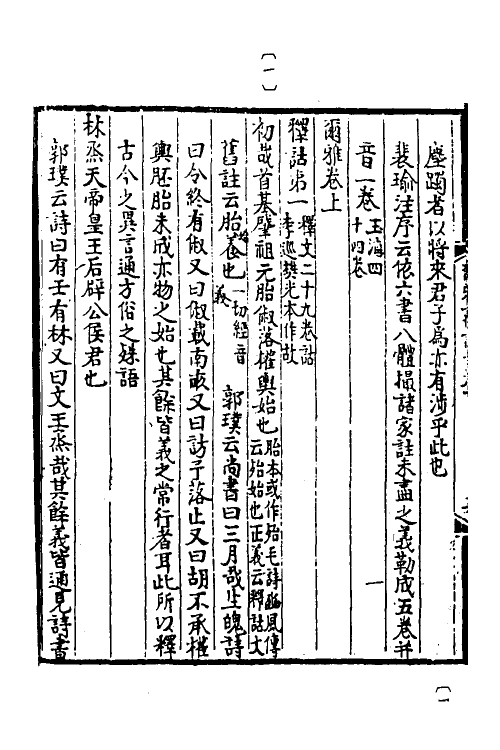 〔一〕
麈躅者以將來君子為亦有涉乎此也
裴瑜注序云依六書八體撮諸家註未盡之義勒成五卷并
音一卷 玉海四十四卷 一
爾雅卷上
釋詁第一 釋文二十九卷詁李巡樊光本作故
初哉首基肇祖元胎俶落權輿始也 胎本或作殆毛詩豳風傳云殆始也正義云釋詁文
舊註云胎始養也 一切經音義 郭璞云尚書曰三月哉生魄詩
曰令終有俶又曰俶載南畝又曰訪予落止又曰胡不承權
輿胚胎未成亦物之始也其餘皆義之常行者耳此所以釋
古今之異言通方俗之殊語
林烝天帝皇王后辟公侯君也
郭璞云詩曰有壬有林又曰文王烝哉其餘義皆通見詩書
〔一